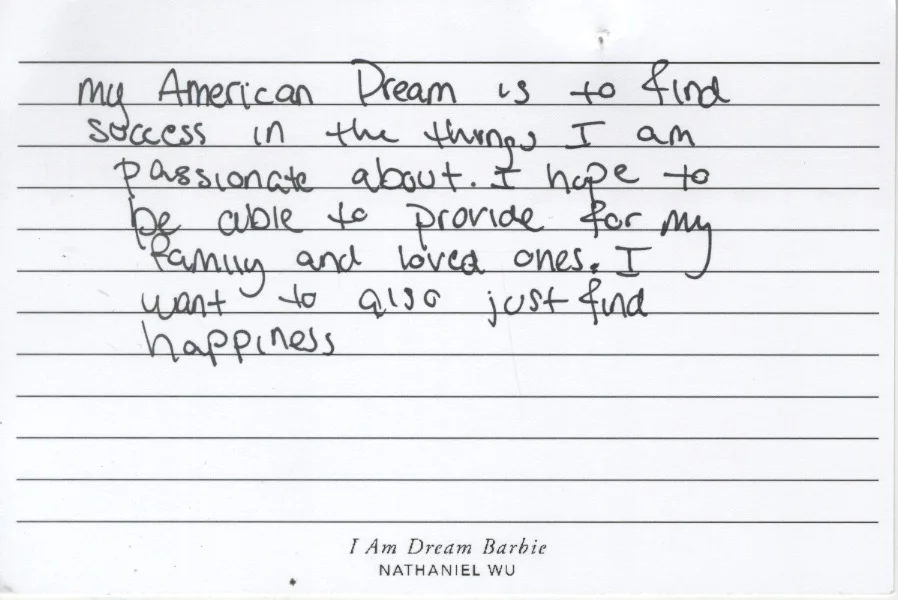 my American Dream is to find
success in the things I am
passionate about. I hope to
be able to provide for my
family and loved ones. I
want to also just find
happiness
I Am Dream Barbie
NATHANIEL WU